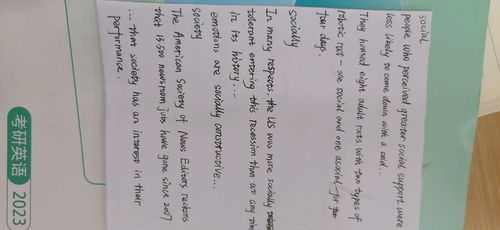 social
people who perceived greater social support were
less likely to come down with a cold...
They housed eight adult rats with two types of
robotic rat — one social and one asocial — for
four days.
socially
In many respects, the US was more socially
tolerant entering this recession than at any
in its history...
emotions are socially constructive...
society
The American Society of News Editors reckons
that 13,500 newsroom jobs have gone since 2007
... that society has an interest in their
performance.
考研英语 2023